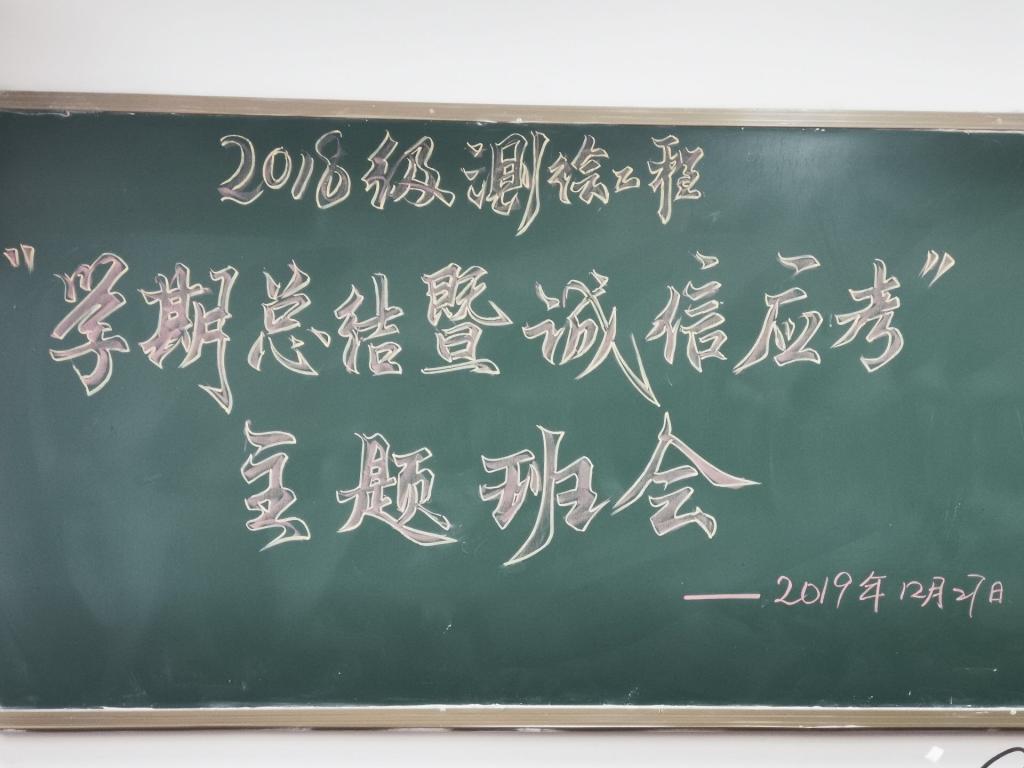 2018级测绘工程
“学期总结暨诚信应考”
主题班会
——2019年12月27日